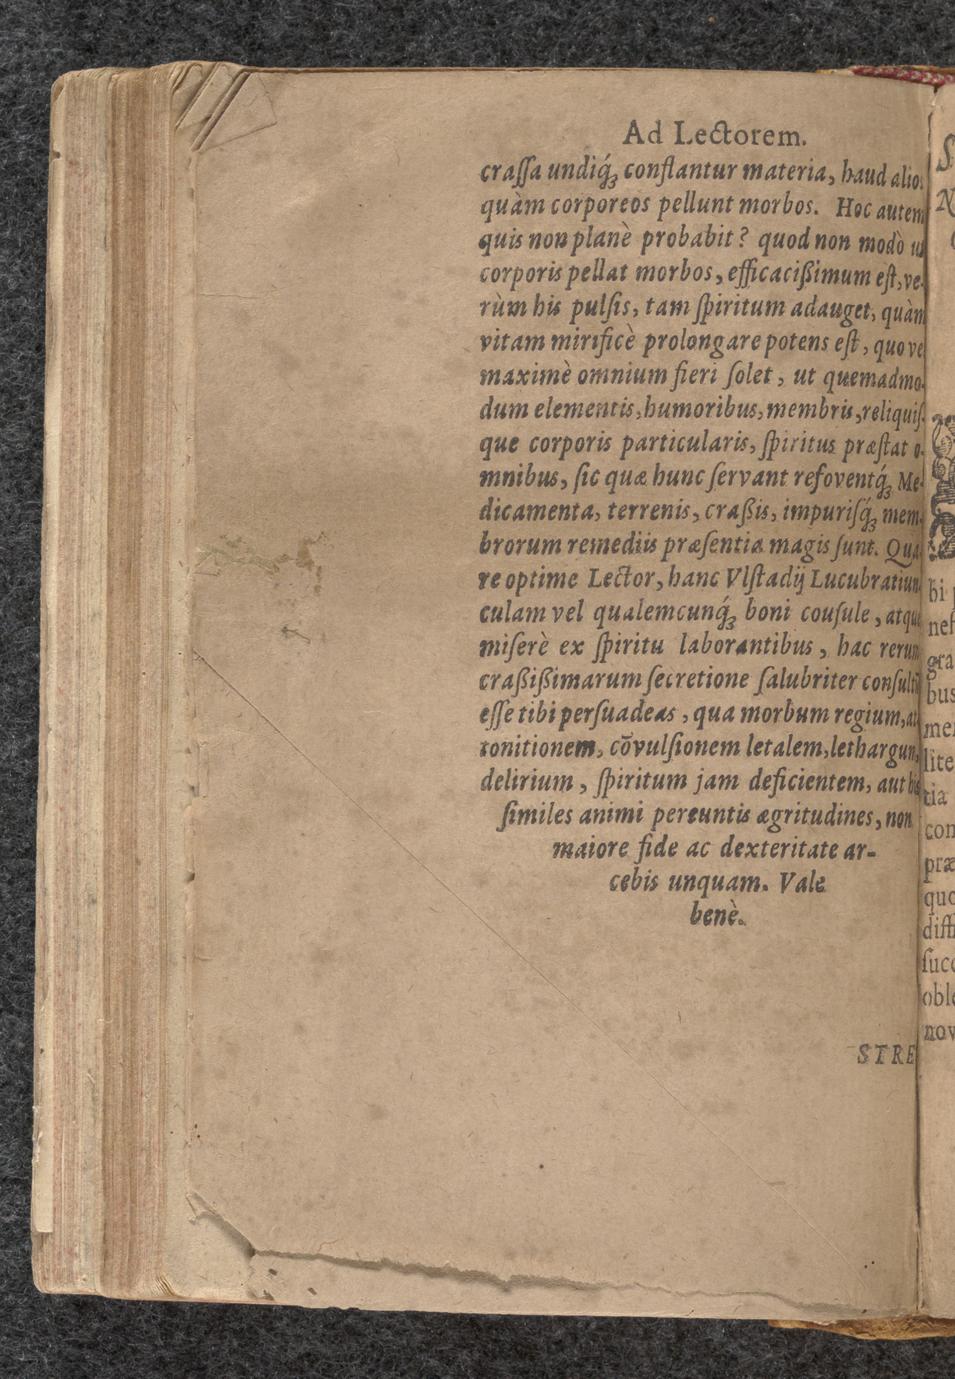 Ad Lectorem.
craſſa undiq́ꝫ conflantur materia, haud alio
quàm corporeos pellunt morbos. Hoc autem
quis non planè probabit? quod non modò
corporis pellat morbos, efficacißimum eſt, ve-
rùm his pulſis, tam ſpiritum adauget, quàm
vitam mirificè prolongare potens eſt, quo ve
maximè omnium fieri ſolet, ut quemadmo-
dum elementis, humoribus, membris, reliquiſ-
que corporis particularis, ſpiritus præſtat o-
mnibus, ſic quæ hunc ſervant refoventq́ꝫ Me-
dicamenta, terrenis, craßis, impuriſq́ꝫ mem-
brorum remediis præſentia magis ſunt. Qua
re optime Lector, hanc Vlſtadij Lucubratiun
culam vel qualemcunq́ꝫ boni couſule, atque
miſerè ex ſpiritu laborantibus, hac rerum
craßißimarum ſecretione ſalubriter conſultū
eſſe tibi perſuadeas, qua morbum regium, at
tonitionem, cōvulſionem letalem, lethargum,
delirium, ſpiritum jam deficientem, aut his
ſimiles animi pereuntis ægritudines, non
maiore fide ac dexteritate ar-
cebis unquam. Vale
benè.
STRE
S
N
bi
neſ
gra
bus
me
lite
tia
con
præ
quo
diſſi
ſucc
oble
nov